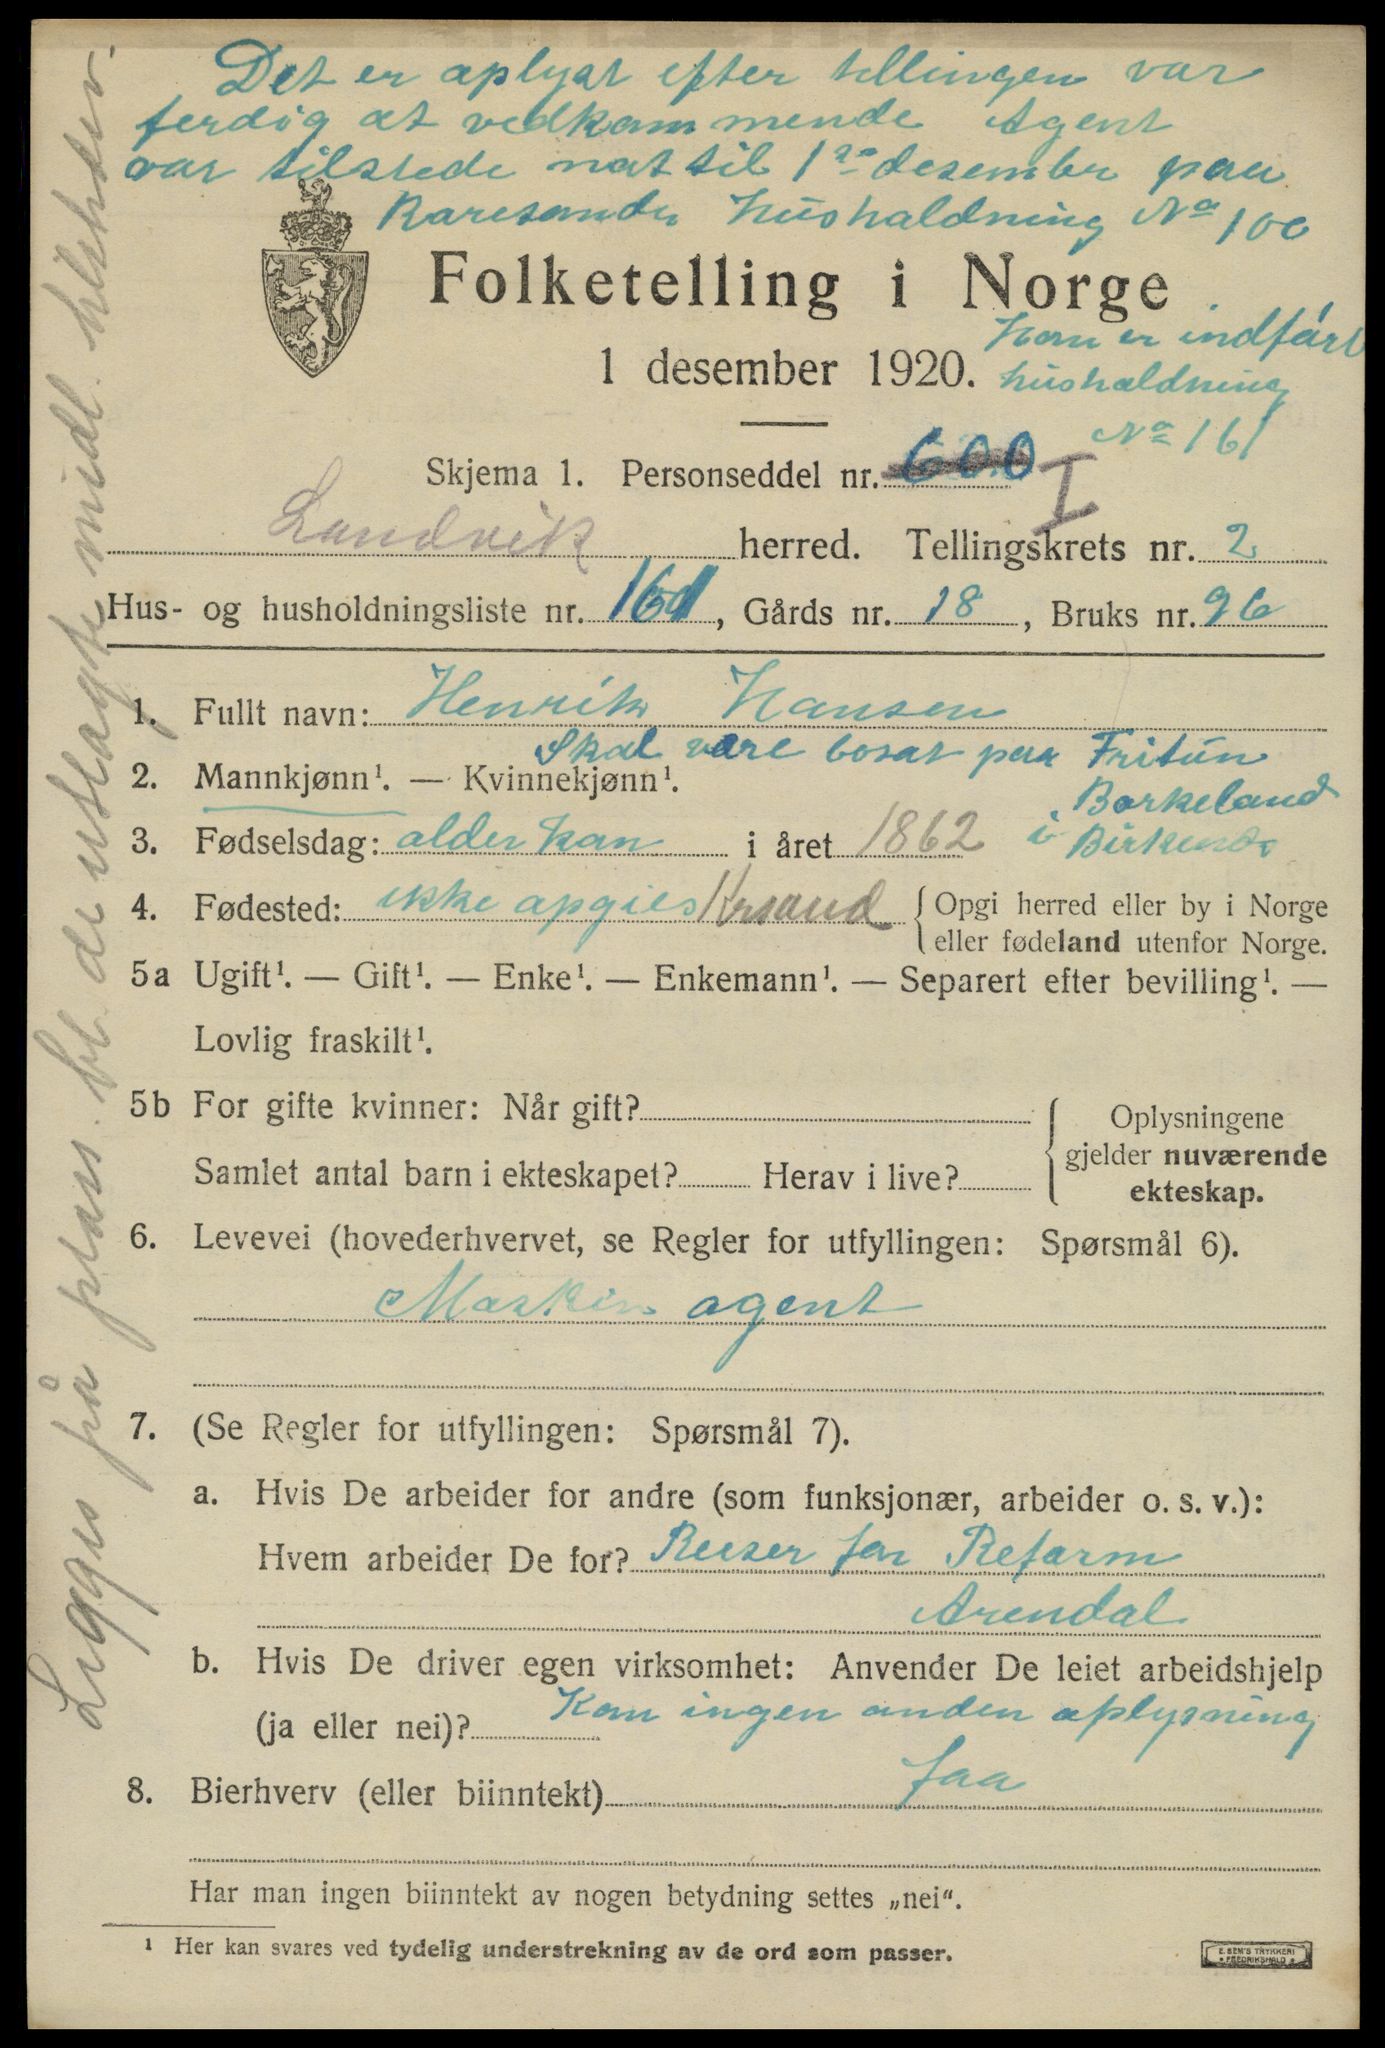 Det er oplyst efter tellingen var
ferdig at vedkommende Agent
var tilstede nat til 1ste desember paa
husholdning No 100
Folketelling i Norge
Han er indført
1 desember 1920.
husholdning
No 161
Skjema 1. Personseddel nr. 600 I
Landvik herred. Tellingskrets nr. 2
Hus- og husholdningsliste nr. 161, Gårds nr. 18, Bruks nr. 96
1. Fullt navn: Henrik Hansen
Skal være bosat paa Fritun
2. Mannkjønn¹. — Kvinnekjønn¹.
Borkeland
3. Fødselsdag: alder kan i året 1862
i Birkenes
4. Fødested: ikke opgies Krsand {Opgi herred eller by i Norge
eller fødeland utenfor Norge.
5a Ugift¹. — Gift¹. — Enke¹. — Enkemann¹. — Separert efter bevilling¹. —
Lovlig fraskilt¹.
5b For gifte kvinner: Når gift?
Samlet antal barn i ekteskapet? Herav i live?
Oplysningene
gjelder nuværende
ekteskap.
6. Levevei (hovederhvervet, se Regler for utfyllingen: Spørsmål 6).
Maskin agent
7. (Se Regler for utfyllingen: Spørsmål 7).
a. Hvis De arbeider for andre (som funksjonær, arbeider o. s. v.):
Hvem arbeider De for? Reiser for Reform
Arendal
b. Hvis De driver egen virksomhet: Anvender De leiet arbeidshjelp
(ja eller nei)? Kan ingen anden oplysning
8. Bierhverv (eller biinntekt) faa
Har man ingen biinntekt av nogen betydning settes „nei“.
¹ Her kan svares ved tydelig understrekning av de ord som passer.
E. SEM'S TRYKKERI
FREDRIKSHALD
Ligges på plass. bl. de utslagte midl.